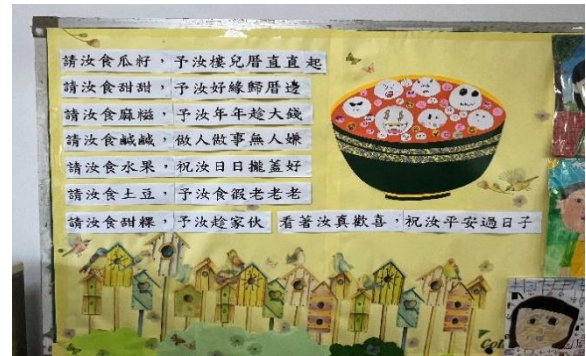 請汝食瓜籽，予汝樓兒厝直直起
請汝食甜甜，予汝好緣歸厝邊
請汝食麻糍，予汝年年趁大錢
請汝食鹹鹹，做人做事無人嫌
請汝食水果，祝汝日日攏蓋好
請汝食土豆，予汝食假老老老
請汝食甜粿，予汝趁家伙 看著汝真歡喜，祝汝平安過日子